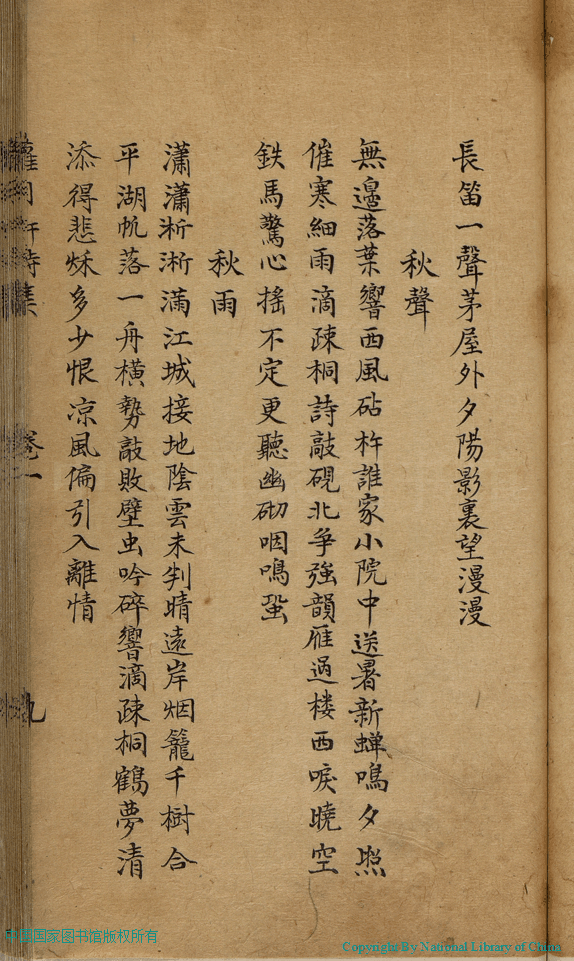 長笛一聲茅屋外夕陽影裏望漫漫
秋聲
無邉落葉響西風砧杵誰家小院中送暑新蝉鳴夕照
催寒細雨滴疎桐詩敲硯北爭強韻雁過楼西唳曉空
鉄馬驚心搖不定更聽幽砌咽鳴蛩
秋雨
瀟瀟淅淅滿江城接地陰雲未判晴遠岸烟籠千樹合
平湖帆落一舟横勢敲敗壁虫吟碎響滴疎桐鶴夢清
添得悲秌多少恨凉風偏引入離情
卷一
九
中国国家图书馆版权所有
Copyright By National Library of China